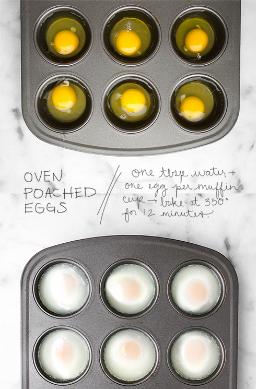 OVEN
POACHED
EGGS
one tbsp water +
one egg per muffin
cup → bake at 350°
for 12 minutes